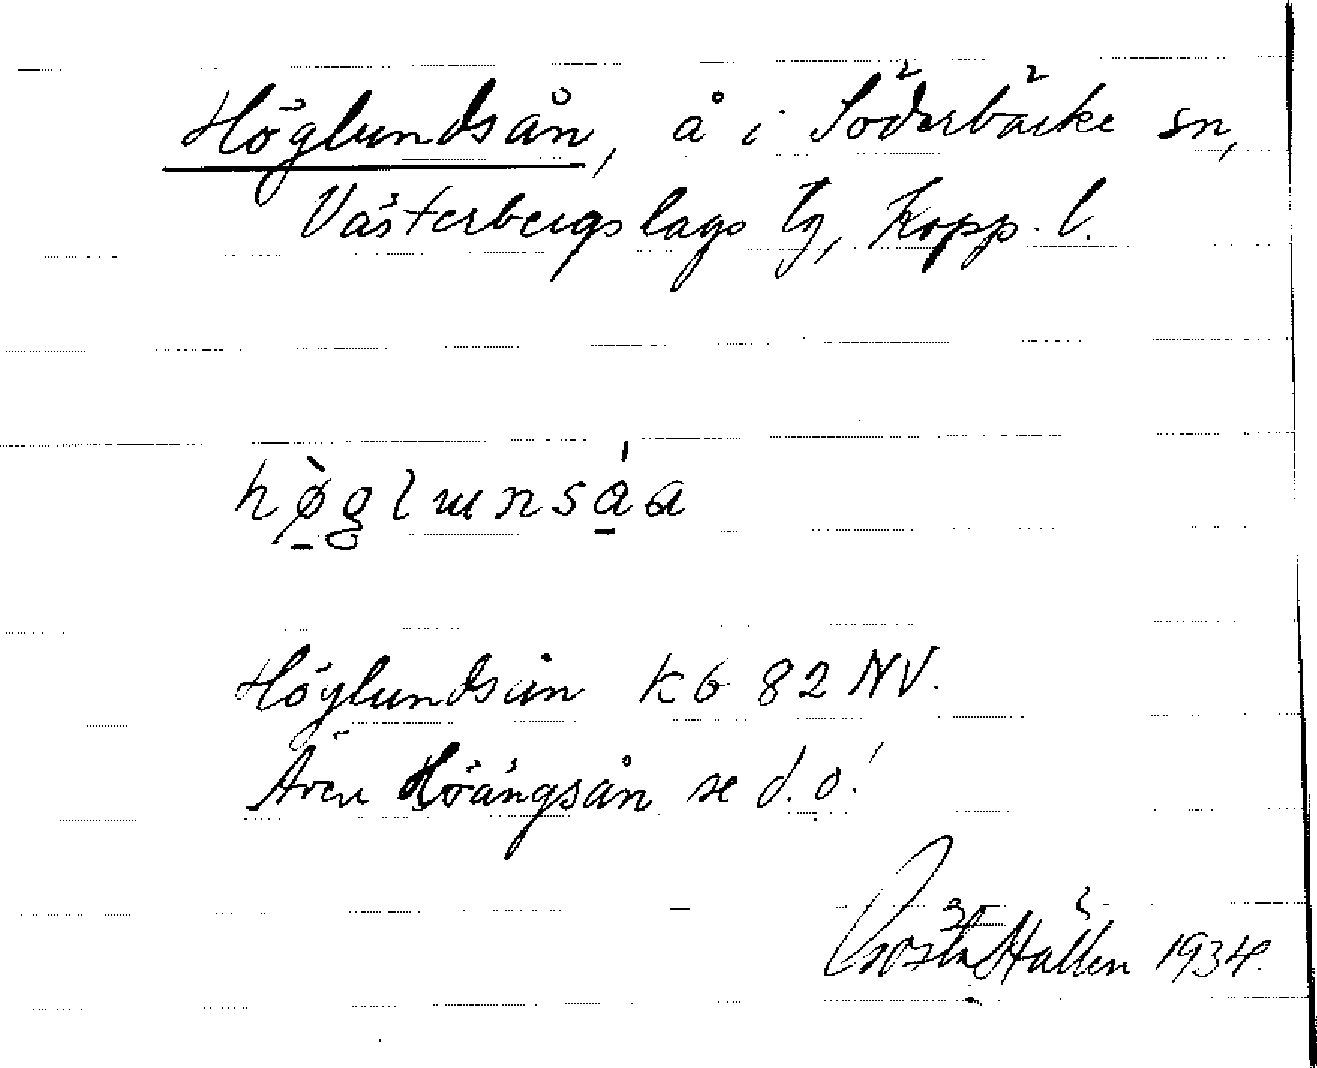 Höglundsån, å i Söderbärke sn,
Västerbergslags tg, Kopp. l.
hø̀glunsåa
Höglundsån kb 82 NV.
Även Höängsån se d.o!
Gösta Hallén 1934.